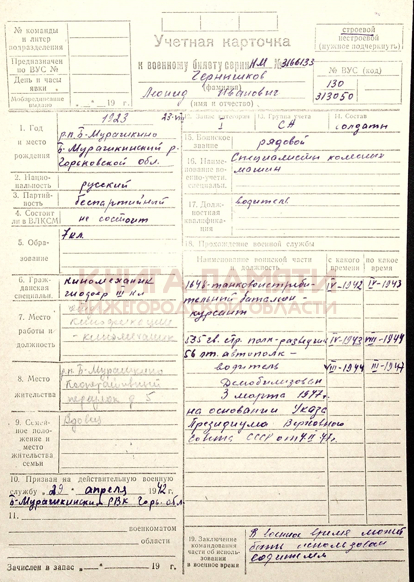 № команды и литер подразделения
Предназначен по ВУС №
День и часы явки
Мобпредписание выдано
„__“ 19 г.
Учетная карточка
к военному билету серии НМ № 3166133
Чернышков
(фамилия)
Леонид Иванович
(имя и отчество)
строевой
нестроевой
(нужное подчеркнуть)
№ ВУС (код)
130
313050
1. Год и место рождения
1923 23-VII
р.п. Б-Мурашкино
Б-Мурашкинский р-
Горьковской обл.
2. Национальность
русский
3. Партийность
беспартийный
4. Состоит ли в ВЛКСМ
не состоит
5. Образование
7 кл.
6. Гражданская специальн.
киномеханик
III
7. Место работы и должность
киномеханик
8. Место жительства
р.п. Б-Мурашкино
переулок д 5
9. Семейное положение и место жительства семьи
Вдовец
10. Призван на действительную военную
службу „29“ апреля 1942 г.
Б-Мурашкинским РВК Горь. обл.
11.
военкоматом
области
Зачислен в запас „__“ 19 г.
12. Запас категории
I
13. Группа учета
СА
14. Состав
солдаты
15. Воинское звание
рядовой
16. Наименование военно-учетн. специальн.
Специалисты колесных
машин
17. Должностная квалификация
водитель
18. Прохождение военной службы
Наименование воинской части
должность
с какого времени
по какое время
164б- танковоистреби IV-1942 IV-1943
тельный баталион -
курсант
535 гв. стр. полк-разведчик IV-1943 VIII-1944
56 от. автополк -
водитель VIII-1944 III-1947
Демобилизован
3 марта 1947г.
на основании Указа
Президиума Верховного
Совета СССР от
19. Заключение командования части об использовании в военное время
В военное время может
быть использован
водителем
КНИГА ПАМЯТИ
НИЖЕГОРОДСКОЙ ОБЛАСТИ